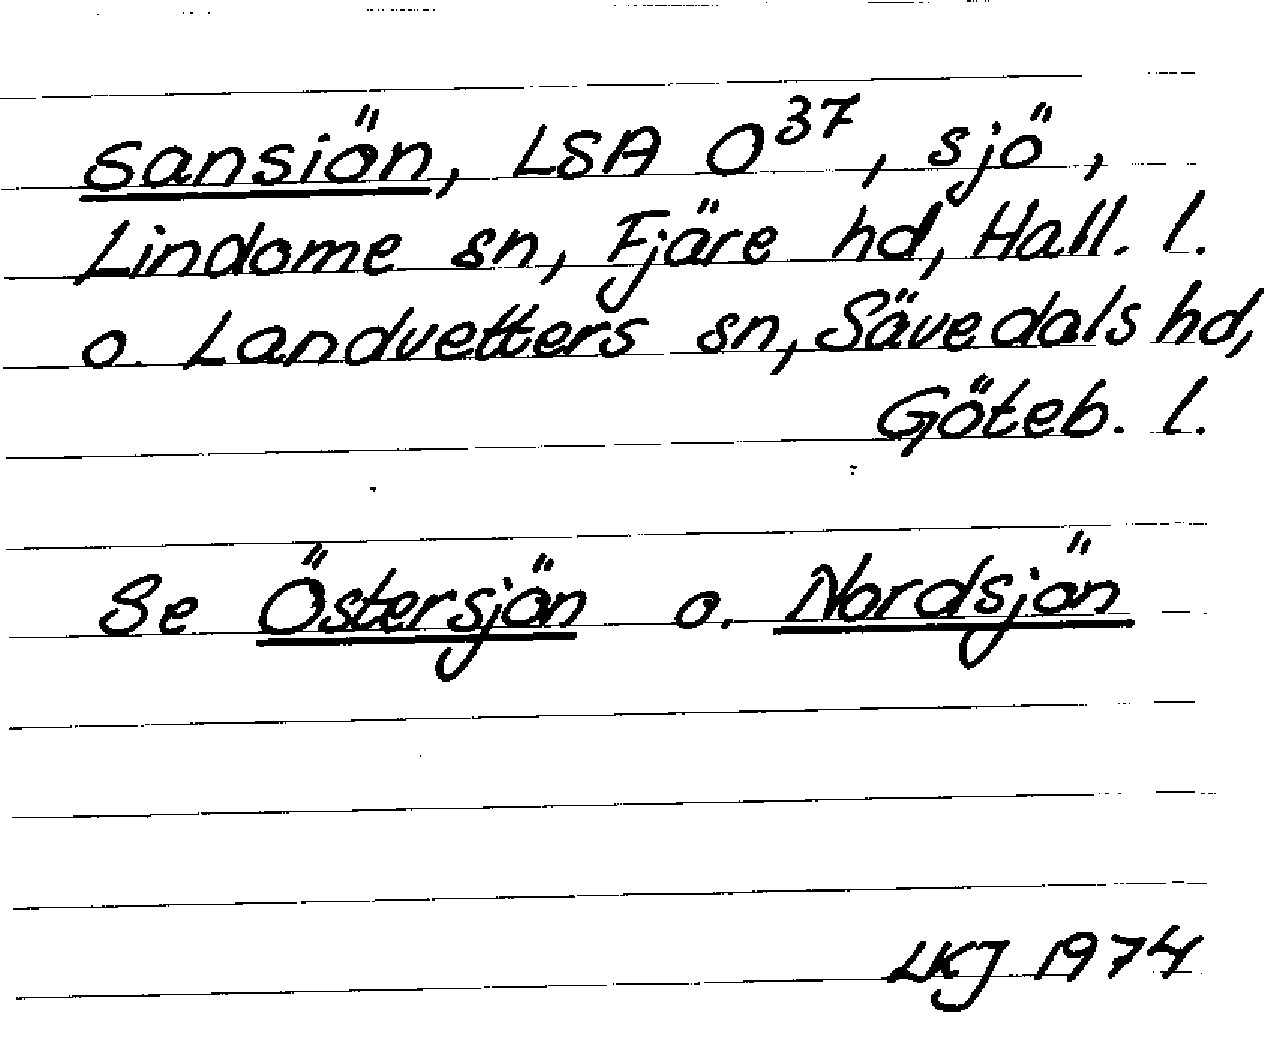 sansiön, LSA O37, sjö,
Lindome sn, Fjäre hd, Hall. l.
o. Landvetters sn, Sävedals hd,
Göteb. l.
Se Östersjön o. Nordsjön
LKJ 1974